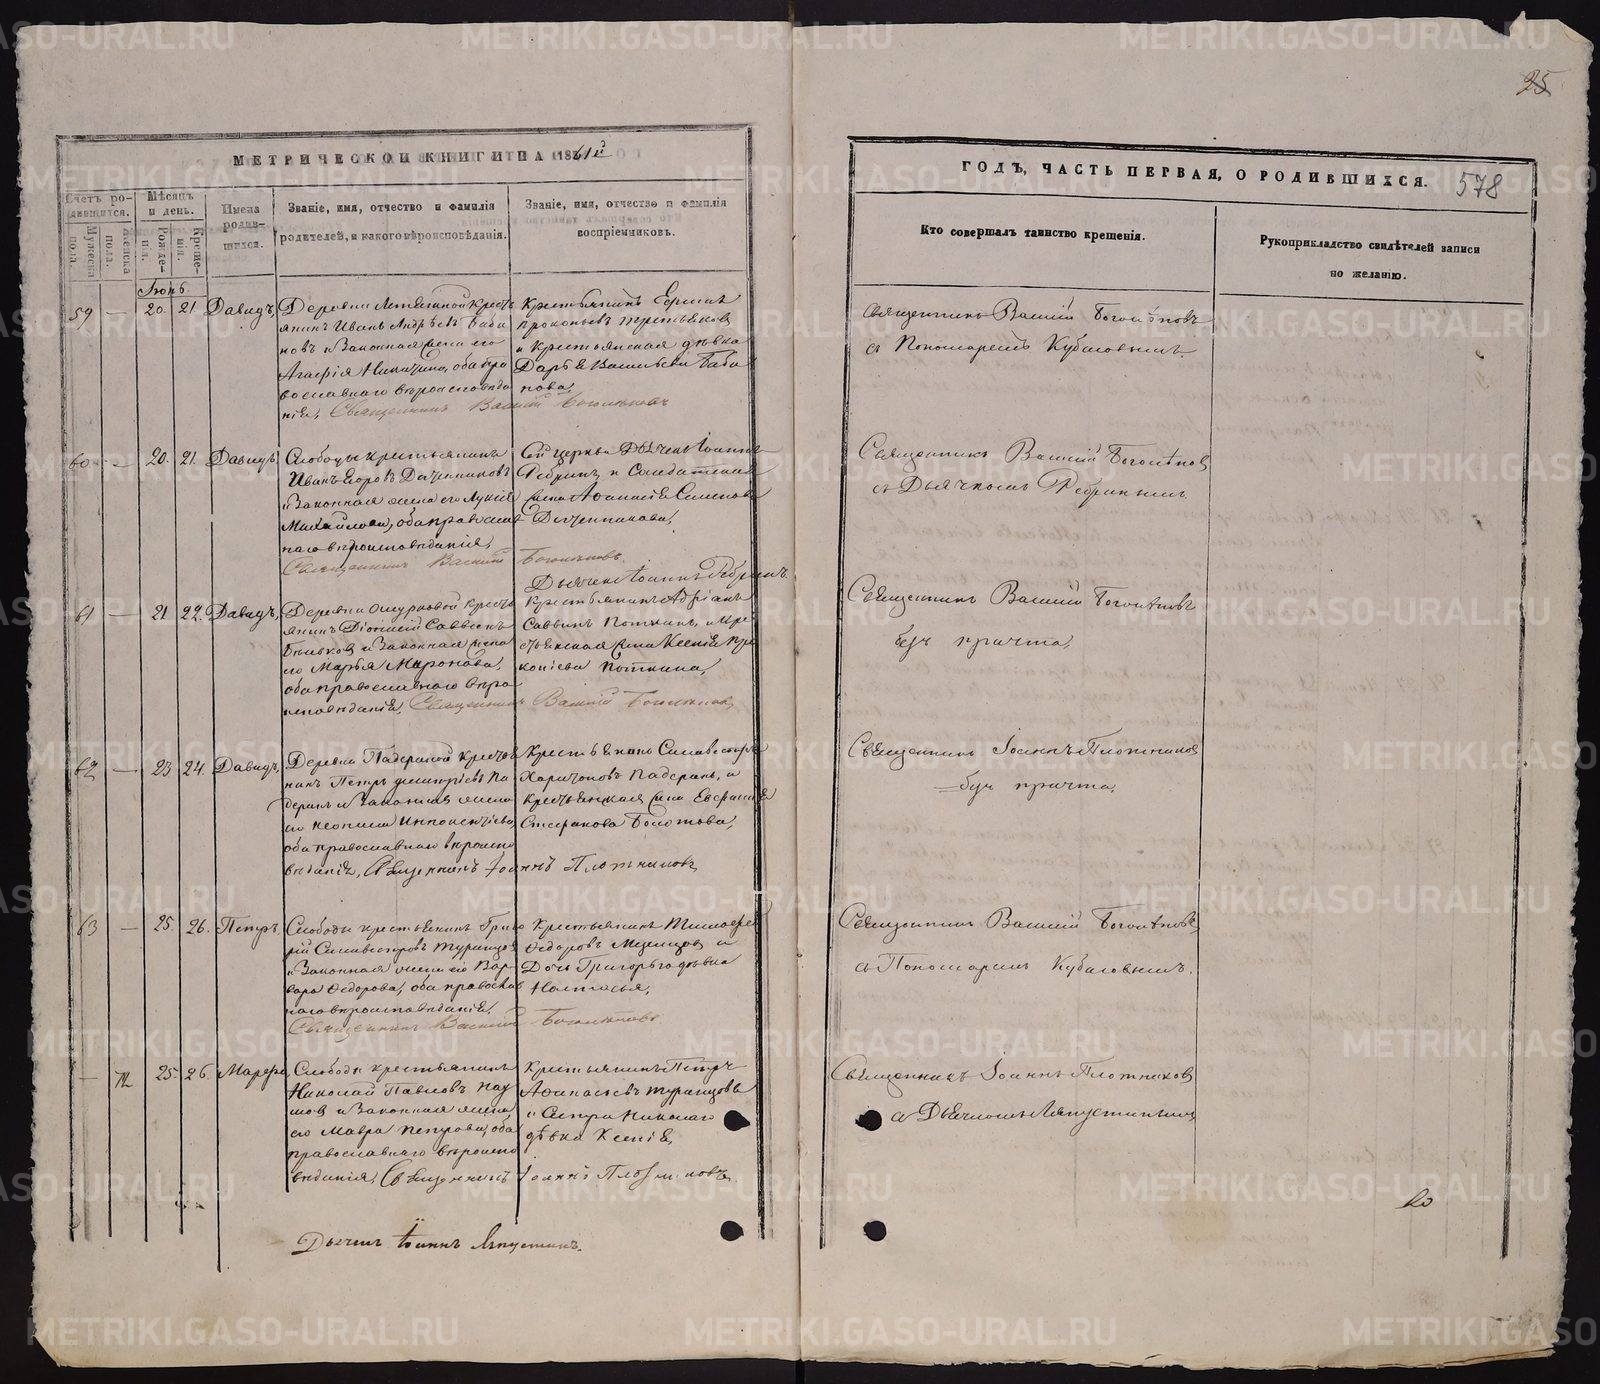 МЕТРИЧЕСКОЙ КНИГИ НА 1861й
Счетъ родившихся.
Мѣсяцъ и день.
Имена родившихся.
Званіе, имя, отчество и фамилія родителей, и какого вѣроисповѣданія.
Званіе, имя, отчество и фамилія воспріемниковъ.
Мужеска пола.
Женска пола.
Рожденія.
Крещенія.
ГОДЪ, ЧАСТЬ ПЕРВАЯ, О РОДИВШИХСЯ.
578
25
Кто совершалъ таинство крещенія.
Рукоприкладство свидѣтелей записи по желанію.
Іюнь
59 — 20. 21 Давидъ,
Деревни крест
янинъ Иванъ Андрѣевъ Баби
новъ и Законная жена его
Агафія Никитина, оба пра
вославнаго вѣроисповѣда
нія, Священникъ Василій Боголѣповъ
Крестьянинъ
Прокопьевъ Третьяковъ
и Крестьянская дѣвка
Дарья Васильева Баби
нова,
Священникъ Василій Боголѣповъ
съ Пономаремъ Кубасовымъ.
60 — 20. 21. Давидъ
Слободы крестьянинъ
Иванъ Егоровъ
и Законная жена его Лукія
Михайлова, оба православ
наго вѣроисповѣданія,
Священникъ Василій Боголѣповъ.
Сей церкви Дьячекъ Іоаннъ
Ребринъ и Солдатская
жена Аѳанасія Семенова
Дьячекъ Іоаннъ Ребринъ.
Священникъ Василій Боголѣповъ
съ Дьячкомъ Ребринымъ.
61 — 21 22. Давидъ,
Деревни Ошурковой Крест
янинъ Діонисій Саввинъ
и Законная жена
его Марья Миронова,
оба православнаго вѣро
исповѣданія, Священникъ Василій Боголѣповъ,
Крестьянинъ Адріанъ
Саввинъ Поткинъ, и кре
стьянская жена Ксенія Про
копіева Поткина,
Священникъ Василій Боголѣповъ
безъ причта,
62 — 23 24. Давидъ,
Деревни Падериной крестья
нинъ Петръ Димитріевъ Па
деринъ и Законная жена
его Неонила Иннокентіева,
оба православнаго вѣроиспо
вѣданія, Священникъ Іоаннъ Плотниковъ
Крестьянинъ Сильвестръ
Харитоновъ Падеринъ, и
крестьянская жена Евфимія
Стефанова Болотова,
Священникъ Іоаннъ Плотниковъ
безъ причта.
63 — 25. 26. Петръ,
Слободы крестьянинъ Григо
рій Сильвестровъ Туринцовъ
и Законная жена его Вар
вара Ѳедорова, оба православ
наго вѣроисповѣданія,
Священникъ Василій Боголѣповъ
Крестьянинъ Тимоѳей
Ѳедоровъ и
Дочь Григорья дѣвка
Настасья,
Священникъ Василій Боголѣповъ
съ Пономаремъ Кубасовымъ.
— 72 25. 26. Марфа,
Слободы крестьянинъ
Николай Павловъ
и Законная жена
его Мавра Петрова, оба
православнаго вѣроиспо
вѣданія, Священникъ Іоаннъ Плотниковъ
Крестьянинъ Петръ
Аѳанасьевъ Туринцовъ
и Сестра Николая
дѣвка Ксенія,
Священникъ Іоаннъ Плотниковъ
съ Дьячкомъ Ляпустинымъ
Дьячекъ Іоаннъ Ляпустинъ.
METRIKI.GASO-URAL.RU